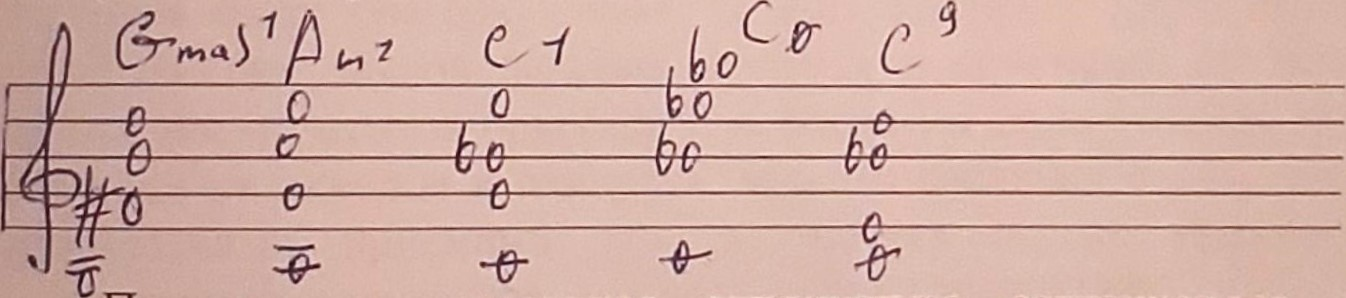 Gmaj7 Am7 C7 Cø C9